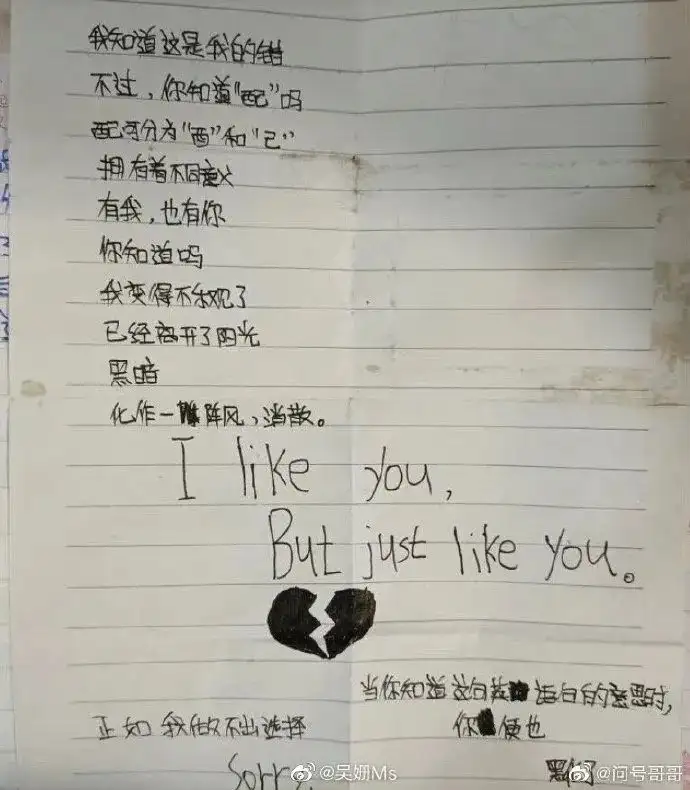 我知道这是我的错
不过，你知道“配”吗
配可分为“酉”和“己”
拥有着不同意义
有我，也有你
你知道吗
我变得不乐观了
已经离开了阳光
黑暗
化作一阵风，消散。
I like you,
But just like you。
当你知道这句英 造句的意思时，
正如我做不出选择
你便也
Sorry.
@吴姗Ms
@问号哥哥